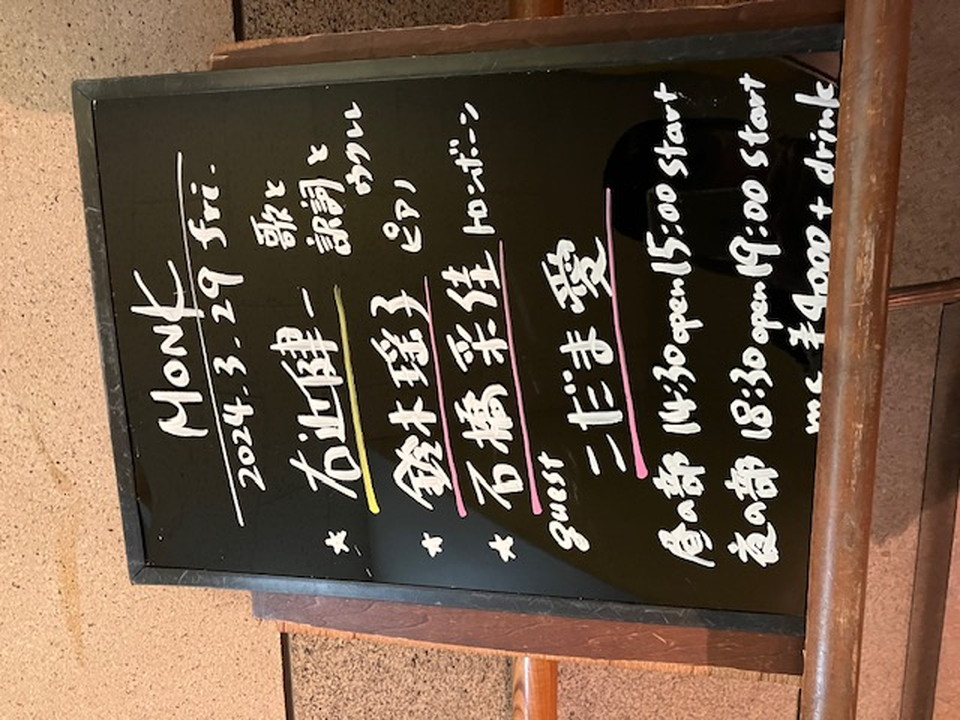 MONK
2024.3.29 fri.
☆ 右近健一 歌と
訳詞と
ウクレレ
☆ 鈴木瑶子 ピアノ
☆ 石橋采佳 トロンボーン
guest
こだま愛
昼の部 14:30 open 15:00 start
夜の部 18:30 open 19:00 start
mc ¥4000 + drink